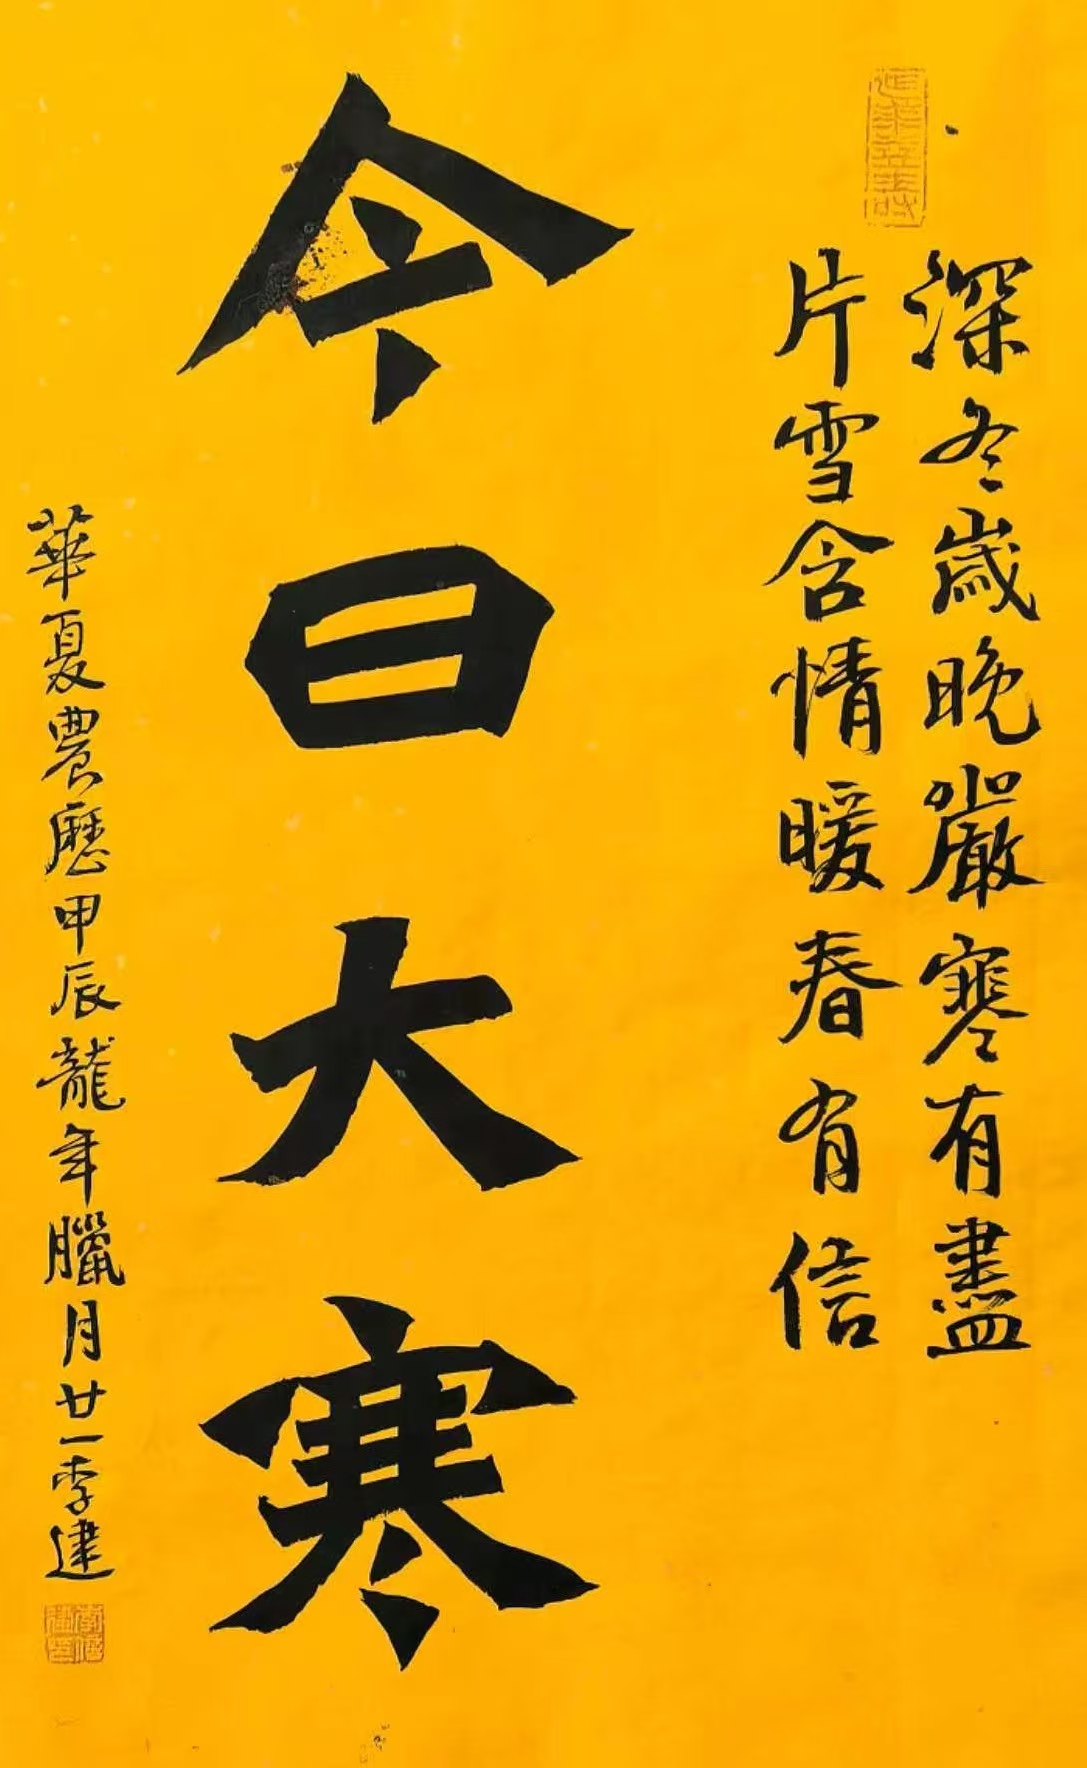 深冬歲晚嚴寒有盡
片雪含情暖春有信
今日大寒
華夏農曆甲辰龍年臘月廿一李建